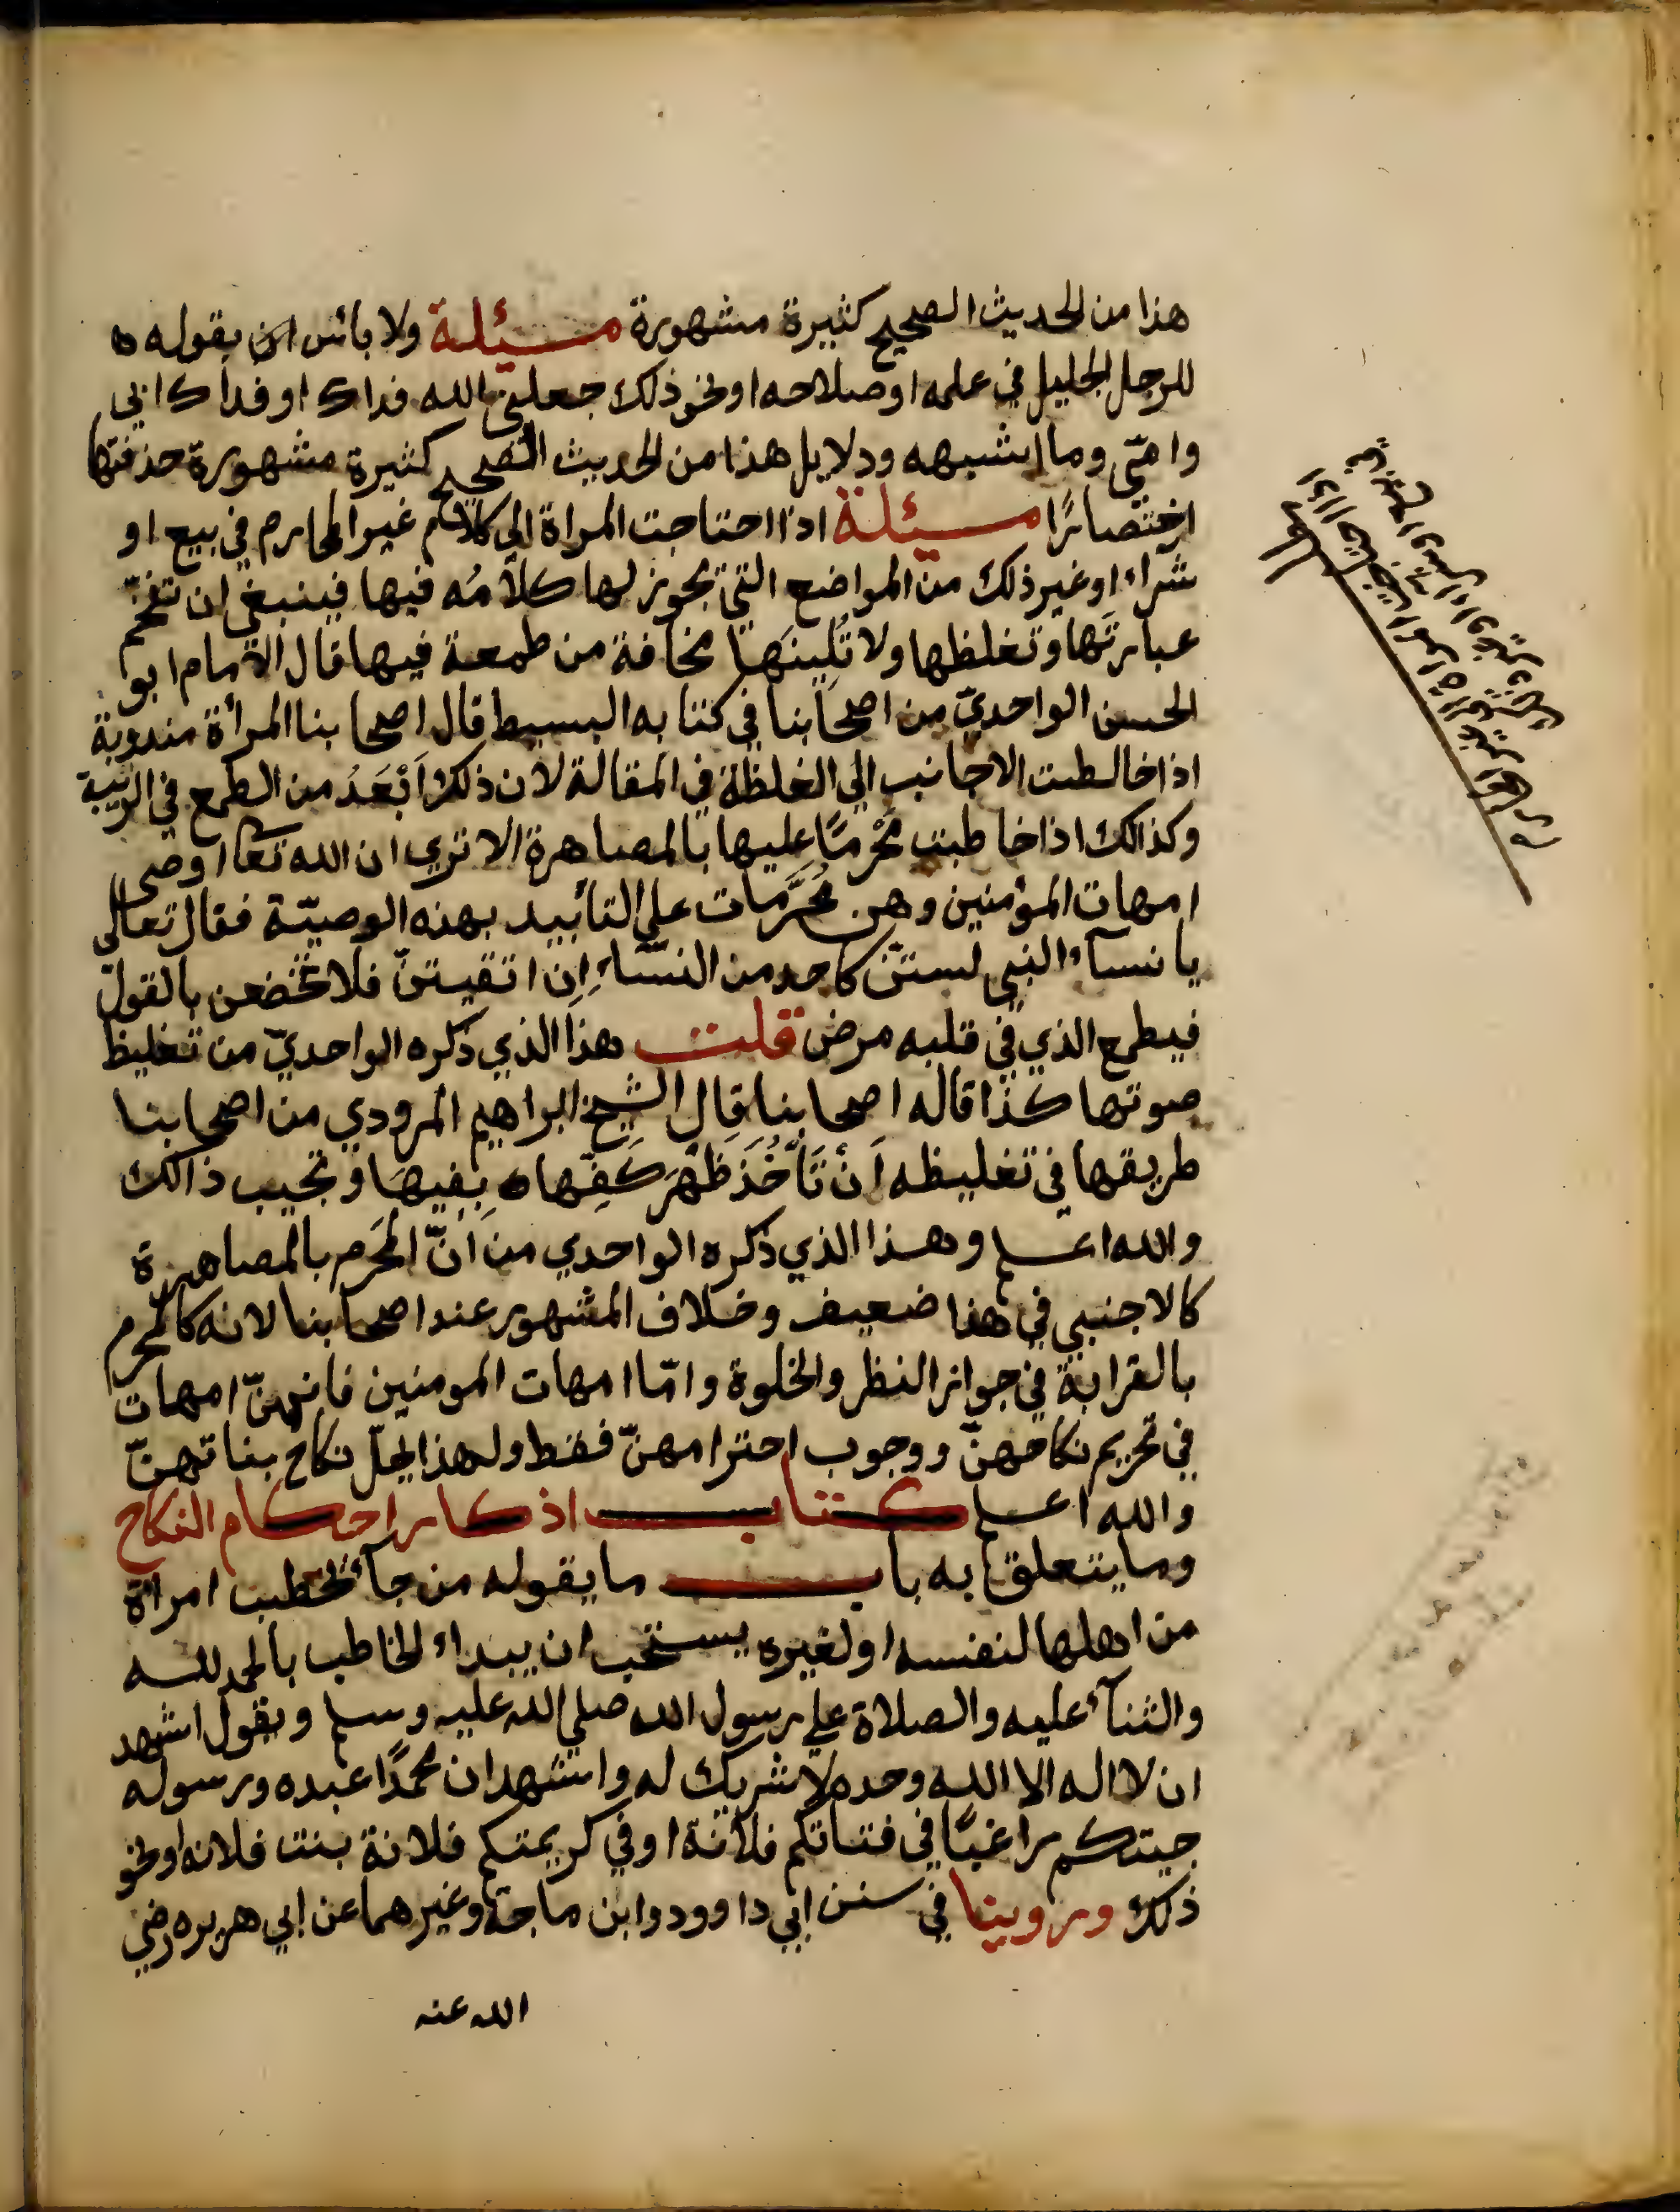 هذا من الحديث الصحيح كثيرة مشهورة مسئلة ولا بائس ان يقوله
للرجل الجليل في علمه او صلاحه او نحو ذلك جعلني الله فداك او فداك ابي
وامّي وما اشبهه ودلايل هذا من الحديث الصحيح كثيرة مشهورة حذفتها
اختصارًا مسئلة اذا احتاجت المراة الى كلام غير المحارم في بيع او
شراء او غير ذلك من المواضع التي يجوز لها كلامُه فيها فينبغي ان تفخّم
عبارتَها وتغلظها ولا تُلِينَها مخافة من طمعة فيها قال الامام ابو
الحسن الواحديّ من اصحابنا في كتابه البسيط قال اصحابنا المرأة مندوبة
اذا خالطت الاجانب الي الغلظة في المقالة لان ذلك اَبْعَدُ من الطمع في الريبة
وكذالك اذا خاطبت مَحْرمًا عليها بالمصاهرة الا تري ان الله تعا اوصى
امهات المؤمنين وهن مُحَرَّمات علي التأبيد بهذه الوصيّة فقال تعالى
يا نسآء النبي لستنّ كاحد من النسّاء اِن اتقيتنّ فلا تخضعن بالقول
فيطمع الذي في قلبه مرض قلت هذا الذي ذكره الواحديّ من تغليظ
صوتها كذا قاله اصحابنا قال الشيخ ابراهيم المرودي من اصحابنا
طريقها في تغليظه اَنْ تَأْخُذَ ظَهْرَ كَفِّها بِفيهَا وتجيب ذالك
والله اعلم وهذا الذي ذكره الواحدي من اَنّ المَحْرَم بالمصاهرة
كالاجنبي في هذا ضعيف وخلاف المشهور عند اصحابنا لانه كالمحرم
بالقرابة في جواز النظر والخلوة وامّا امهات المومنين فانهنّ امهات
في تحريم نكاحهنّ ووجوب احترامهنّ فقط ولهذا يحلّ نكاح بناتهنّ
والله اعلم كتاب اذكار احكام النكاح
وما يتعلق به باب ما يقوله من جآء يخطب امراة
من اهلها لنفسه او لغيره يستحب ان يبداء الخاطب بالحمد لله
والثنآء عليه والصلاة علي رسول الله صلي الله عليه وسلم ويقول اشهد
ان لا اله الا الله وحده لا شريك له واشهد ان محمدًا عبده ورسوله
جيتكم راغبًا في فتاتكم فلانة او في كريمتكم فلانة بنت فلانه او نحو
ذلك وروينا في سنن ابي داوود وابن ماجة وغيرهما عن ابي هريره رضي
الله عنه